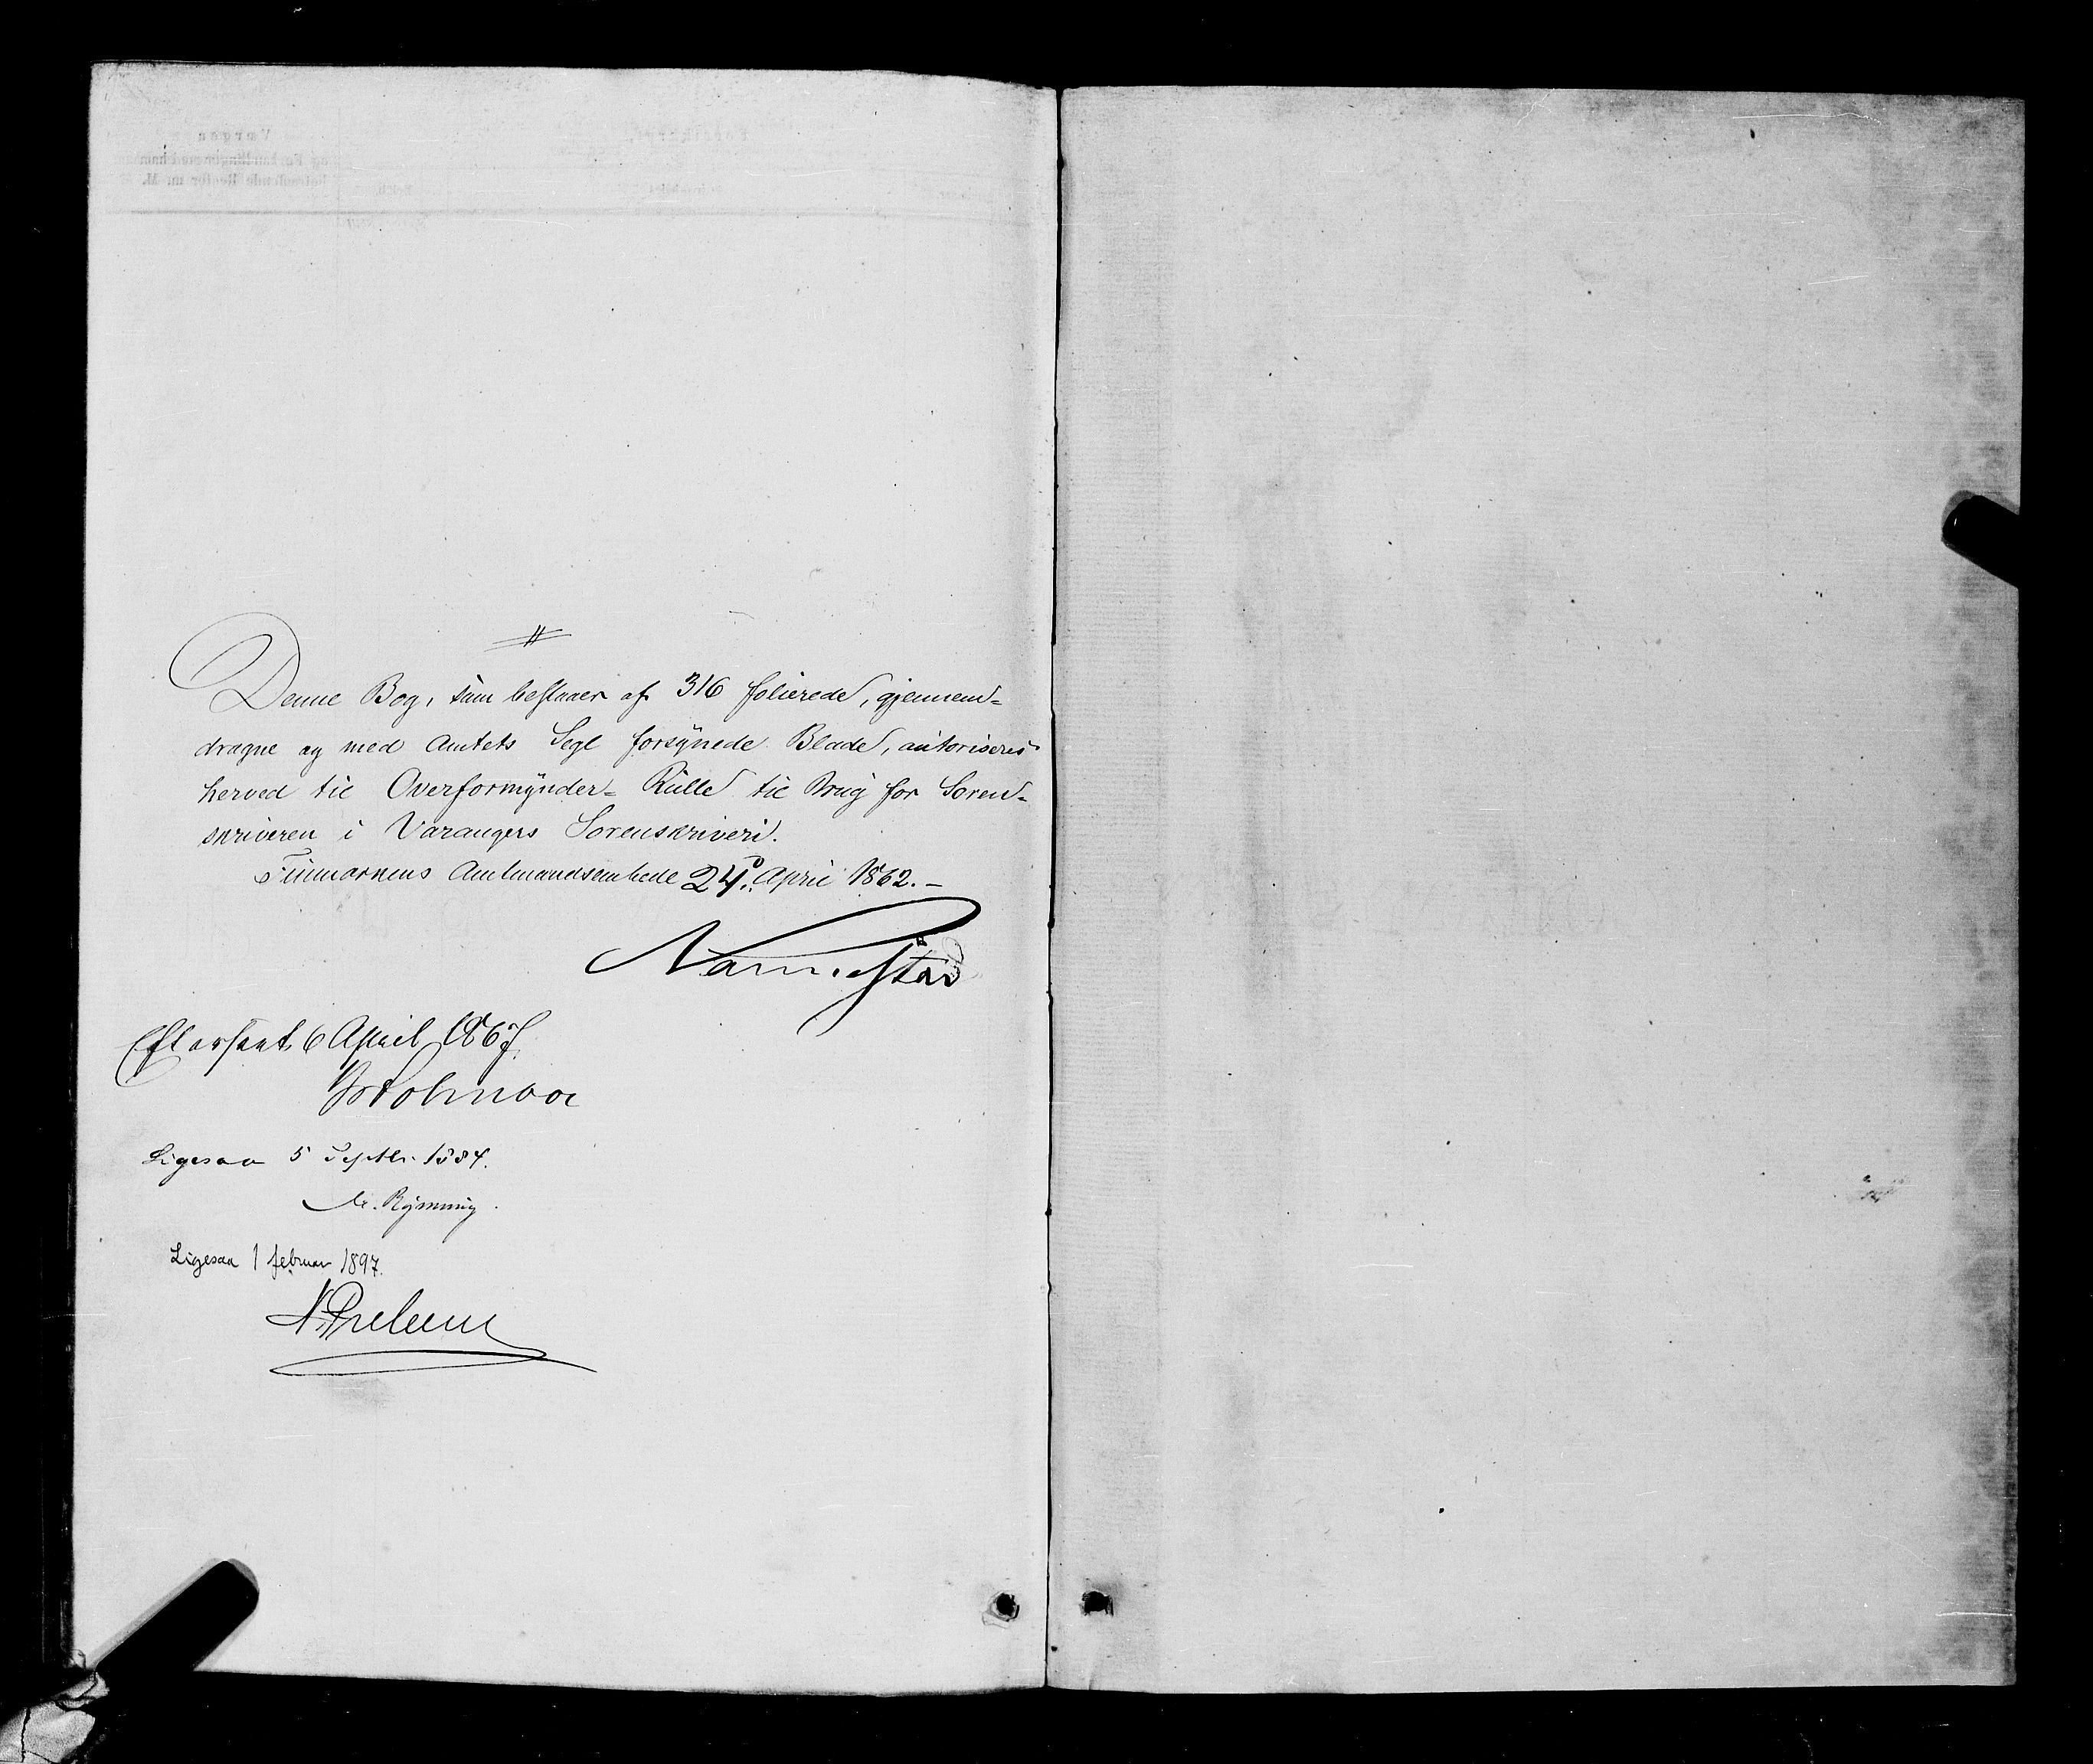 Denne Bog, som bestaaer af 316 folierede, gjennem-
dragne og med Amtets Segl forsynede Blade, autoriseres
herved til Overformynder-Rulle til Brug for Soren-
skriveren i Varangers Sorenskriveri.
Finmarkens Amtmandsembede 24. April 1862.-
Efterseet 6 April 1867.
Holmboe
Ligesaa 5 Septbr. 1884.
Ligesaa 1 februar 1897.
N. Prebens